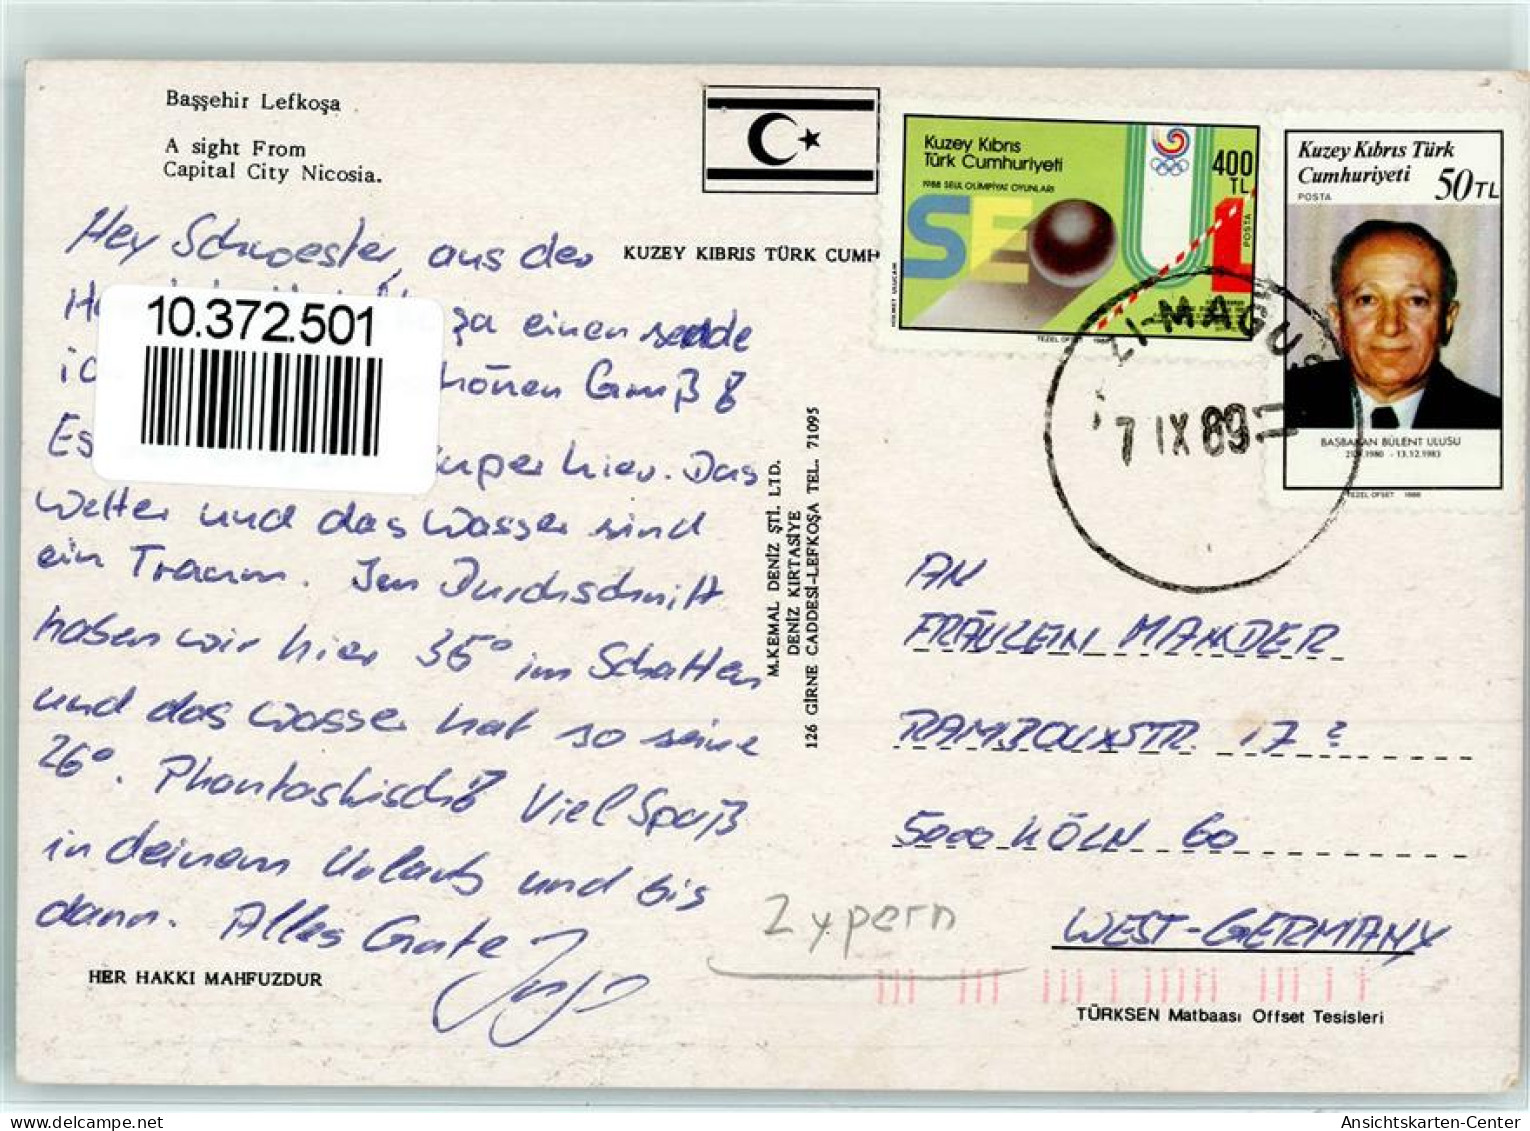 Başşehir Lefkoşa
A sight From
Capital City Nicosia.
KUZEY KIBRIS TÜRK CUMH
Kuzey Kıbrıs
Türk Cumhuriyeti
1988 SEUL OLİMPİYAT OYUNLARI
400
TL
POSTA
SEOUL
TEZEL OFSET 1988
Kuzey Kıbrıs Türk
Cumhuriyeti 50TL
POSTA
BAŞBAKAN BÜLENT ULUSU
- 13.12.1983
TEZEL OFSET 1988
ZI-MAGUS
7 IX 89
10.372.501
Hey Schwester, aus der
einen sende
schönen Gruß!
Es super hier. Das
Wetter und das Wasser sind
ein Traum. Im Durchschnitt
haben wir hier 35° im Schatten
und das Wasser hat so seine
26°. Phantastisch! Viel Spaß
in deinem Urlaub und bis
dann. Alles Gute
M.KEMAL DENİZ ŞTİ. LTD.
DENİZ KIRTASİYE
126 GİRNE CADDESİ-LEFKOŞA TEL. 71095
AN
FRÄULEIN MANDER
RAMBOUXSTR. 17?
5000 KÖLN 60
WEST-GERMANY
Zypern
HER HAKKI MAHFUZDUR
TÜRKSEN Matbaası Offset Tesisleri
Ansichtskarten-Center